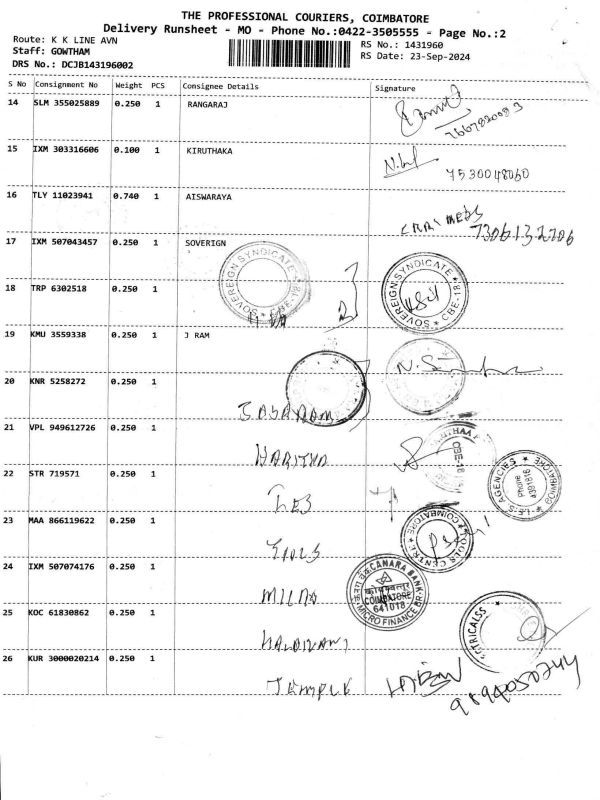 THE PROFESSIONAL COURIERS, COIMBATORE
Delivery Runsheet - MO - Phone No.:0422-3505555 - Page No.:2
Route: K K LINE AVN
RS No.: 1431960
Staff: GOWTHAM
RS Date: 23-Sep-2024
DRS No.: DCJB143196002
S No Consignment No Weight PCS Consignee Details Signature
14 SLM 355025889 0.250 1 RANGARAJ
15 IXM 303316606 0.100 1 KIRUTHAKA
7530048060
16 TLY 11023941 0.740 1 AISWARAYA
7306132706
17 IXM 507043457 0.250 1 SOVERIGN
SOVEREIGN SYNDICATE * CBE-18 *
SOVEREIGN SYNDICATE * CBE-18 *
18 TRP 6302518 0.250 1
2
19 KMU 3559338 0.250 1 J RAM
20 KNR 5258272 0.250 1
21 VPL 949612726 0.250 1
HARITHA
CBE-18
22 STR 719571 0.250 1
LES
LES AGENCIES * COIMBATORE *
Phone
23 MAA 866119622 0.250 1
TOOLS
TOOLS CENTRE * COIMBATORE *
24 IXM 507074176 0.250 1
CANARA BANK
कोयम्बत्तूर
COIMBATORE
641018
MICRO FINANCE BR.
25 KOC 61830862 0.250 1
CTRICALSS
26 KUR 3000020214 0.250 1
TEMPLE
9894050744